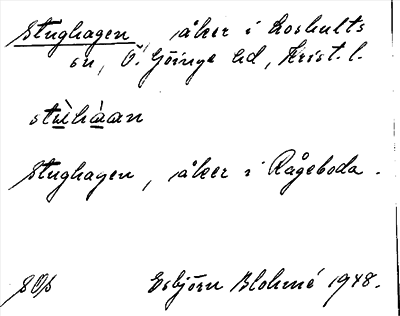 Stughagen, åker i Loshults
sn, Ö. Göinge hd, Krist. l.
stù̲hà̲an
Stughagen, åker i Rågeboda.
Esbjörn Blohmé 1948.